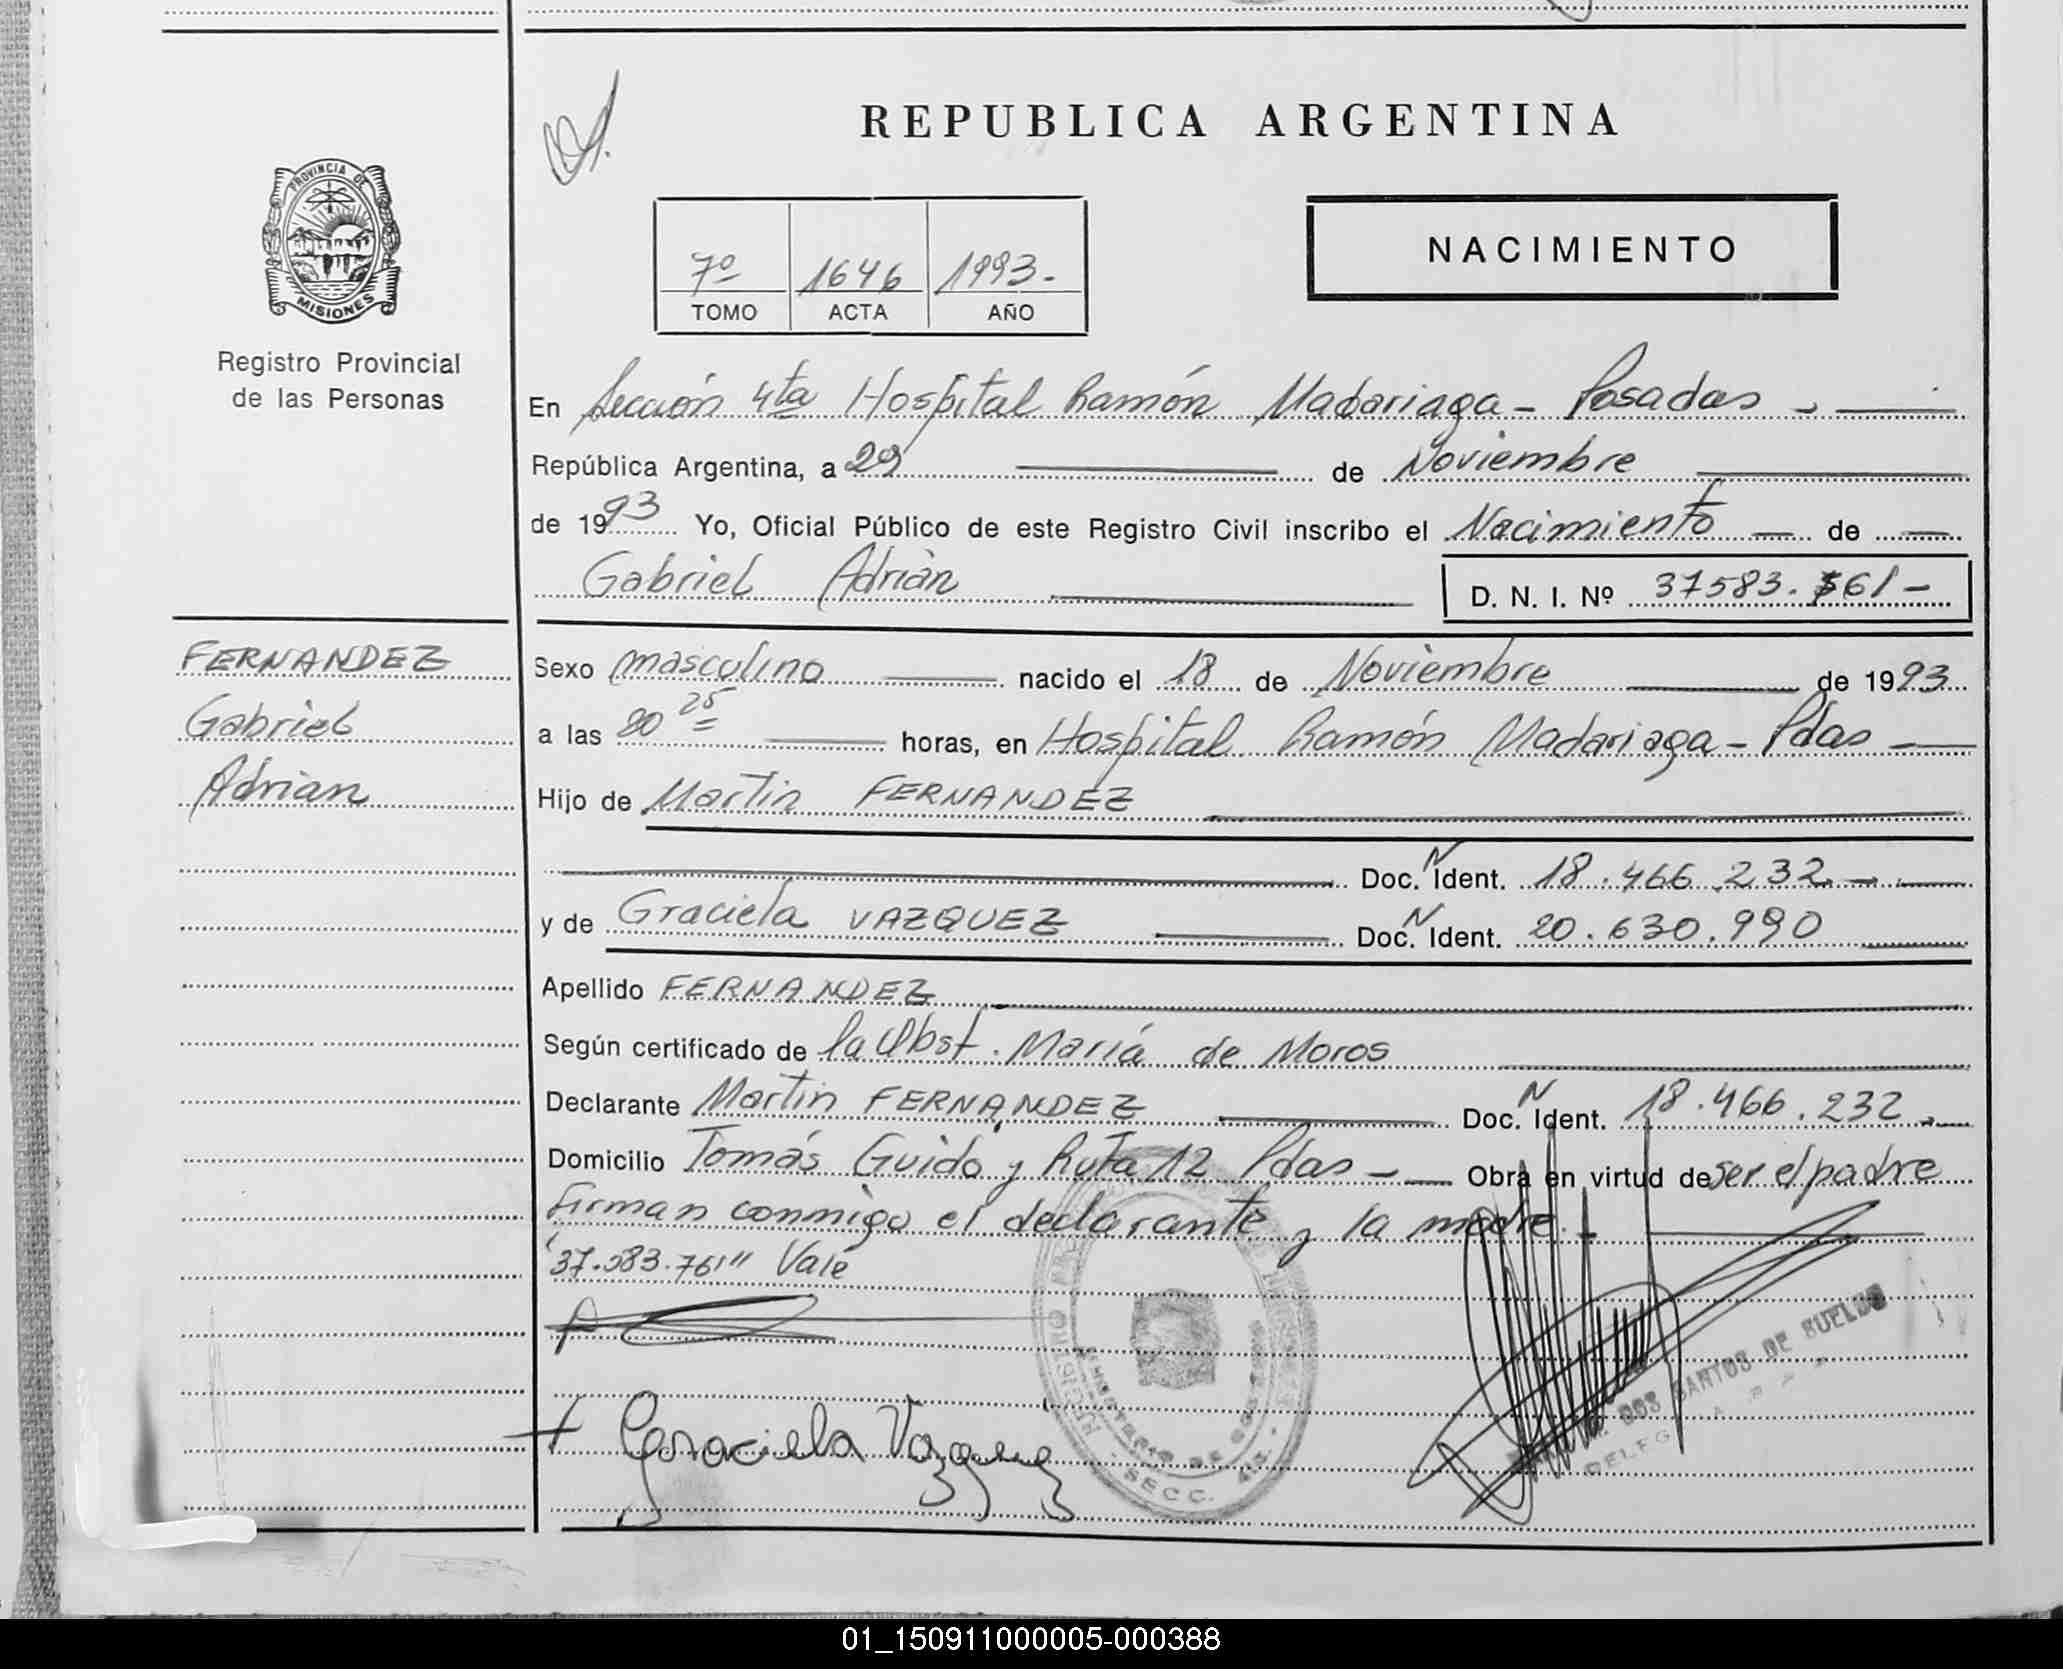 REPUBLICA ARGENTINA
PROVINCIA DE
MISIONES
Registro Provincial
de las Personas
7º 1646 1993.-
TOMO ACTA AÑO
NACIMIENTO
En Sección 4ta Hospital Ramón Madariaga - Posadas -
República Argentina, a 29 de Noviembre
de 1993 Yo, Oficial Público de este Registro Civil inscribo el Nacimiento de
Gabriel Adrián
D. N. I. Nº 37583.761-
FERNANDEZ
Gabriel
Adrian
Sexo masculino nacido el 18 de Noviembre de 1993
a las 20 25 horas, en Hospital Ramón Madariaga - Pdas -
Hijo de Martin FERNANDEZ
Doc. N Ident. 18.466.232.-
y de Graciela VAZQUEZ Doc. N Ident. 20.630.990
Apellido FERNANDEZ
Según certificado de la Obst. Maria de Moros
Declarante Martin FERNANDEZ Doc. N Ident. 18.466.232.-
Domicilio Tomás Guido y Ruta 12 Pdas - Obra en virtud de ser el padre
Firman conmigo el declarante y la madre.-
"37.583.761" Vale
Graciela Vazquez
SECC. 4ta.
DOS SANTOS DE SUELDO
01_150911000005-000388